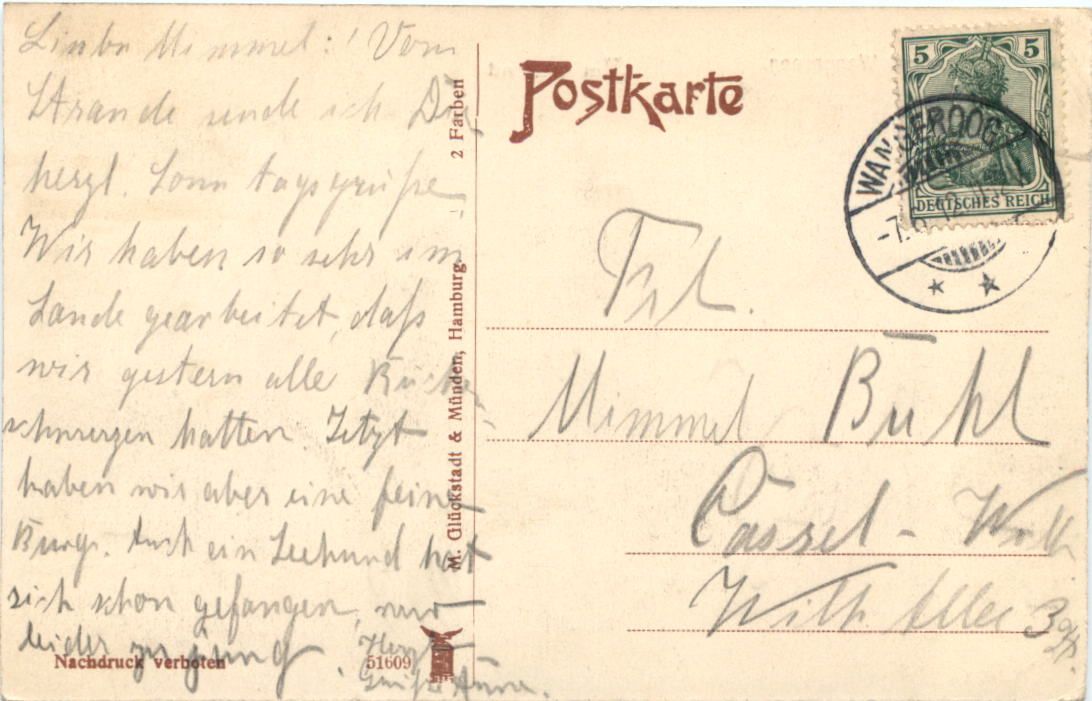 Liebe Mimmel! Vom
Strande sende ich Dir
herzl. Sonntagsgrüße
Wir haben so sehr im
Sande gearbeitet, daß
wir gestern alle Rücken-
schmerzen hatten Jetzt
haben wir aber eine feine
Burg. Auch ein Seehund hat
sich schon gefangen, nur
leider zu jung. Herzl.
Grüße Anna.
Nachdruck verboten
51609
M. Glückstadt & Münden, Hamburg.
2 Farben
Postkarte
5 5
DEUTSCHES REICH
WANGEROOG
Frl.
Mimmel Buhl
Cassel - Wilh
Wilh Allee